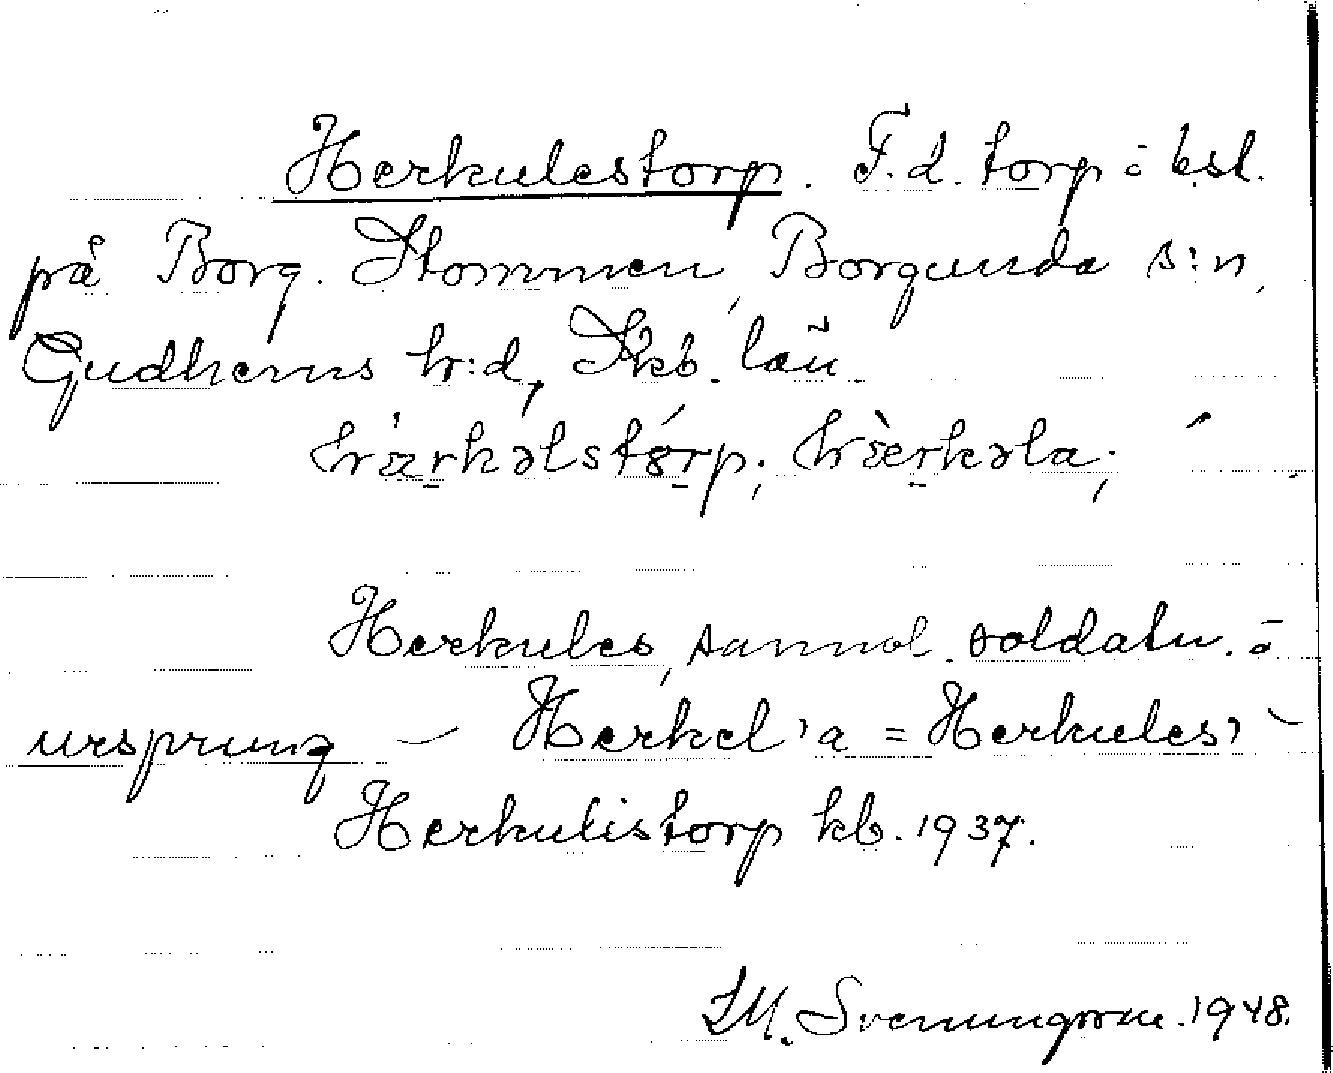 Herkulestorp. F.d. torp o bsl.
på Borg. Stommen, Borgunda s:n,
Gudhems h:d, Skb. län.
hærkəlstórp; hæ̀rkəla;
Herkules, sannol. soldatn. o
ursprung – Herkel'a = Herkules' –
Herkulistorp kb. 1937.
Svenungsson. 1948.